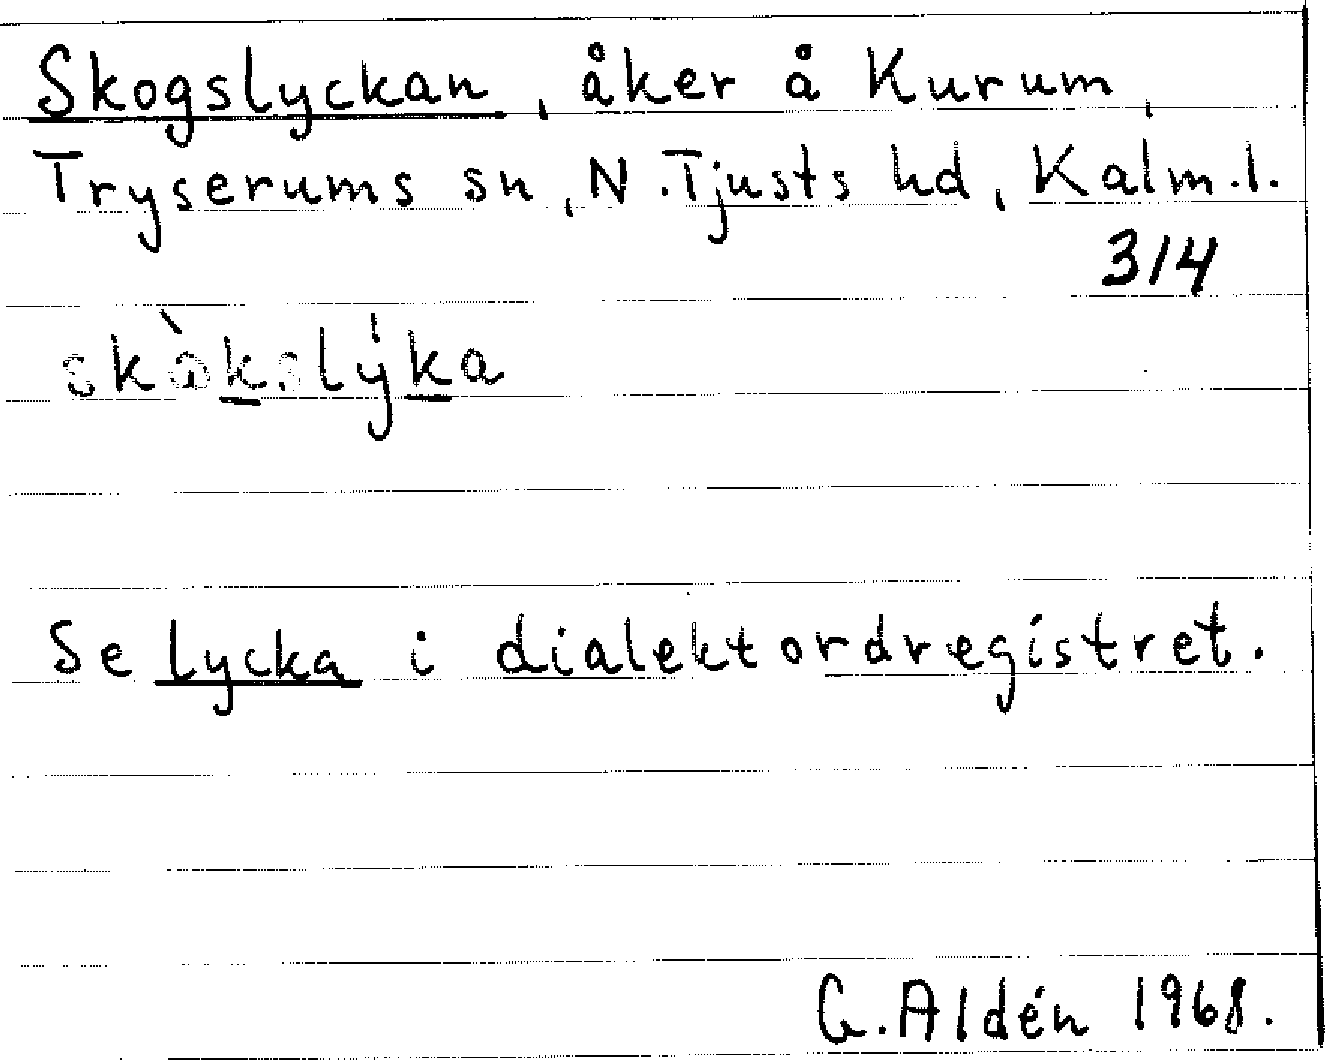 Skogslyckan, åker å Kurum,
Tryserums sn, N. Tjusts hd, Kalm. l.
314
Se lycka i dialektordregistret.
G. Aldén 1968.